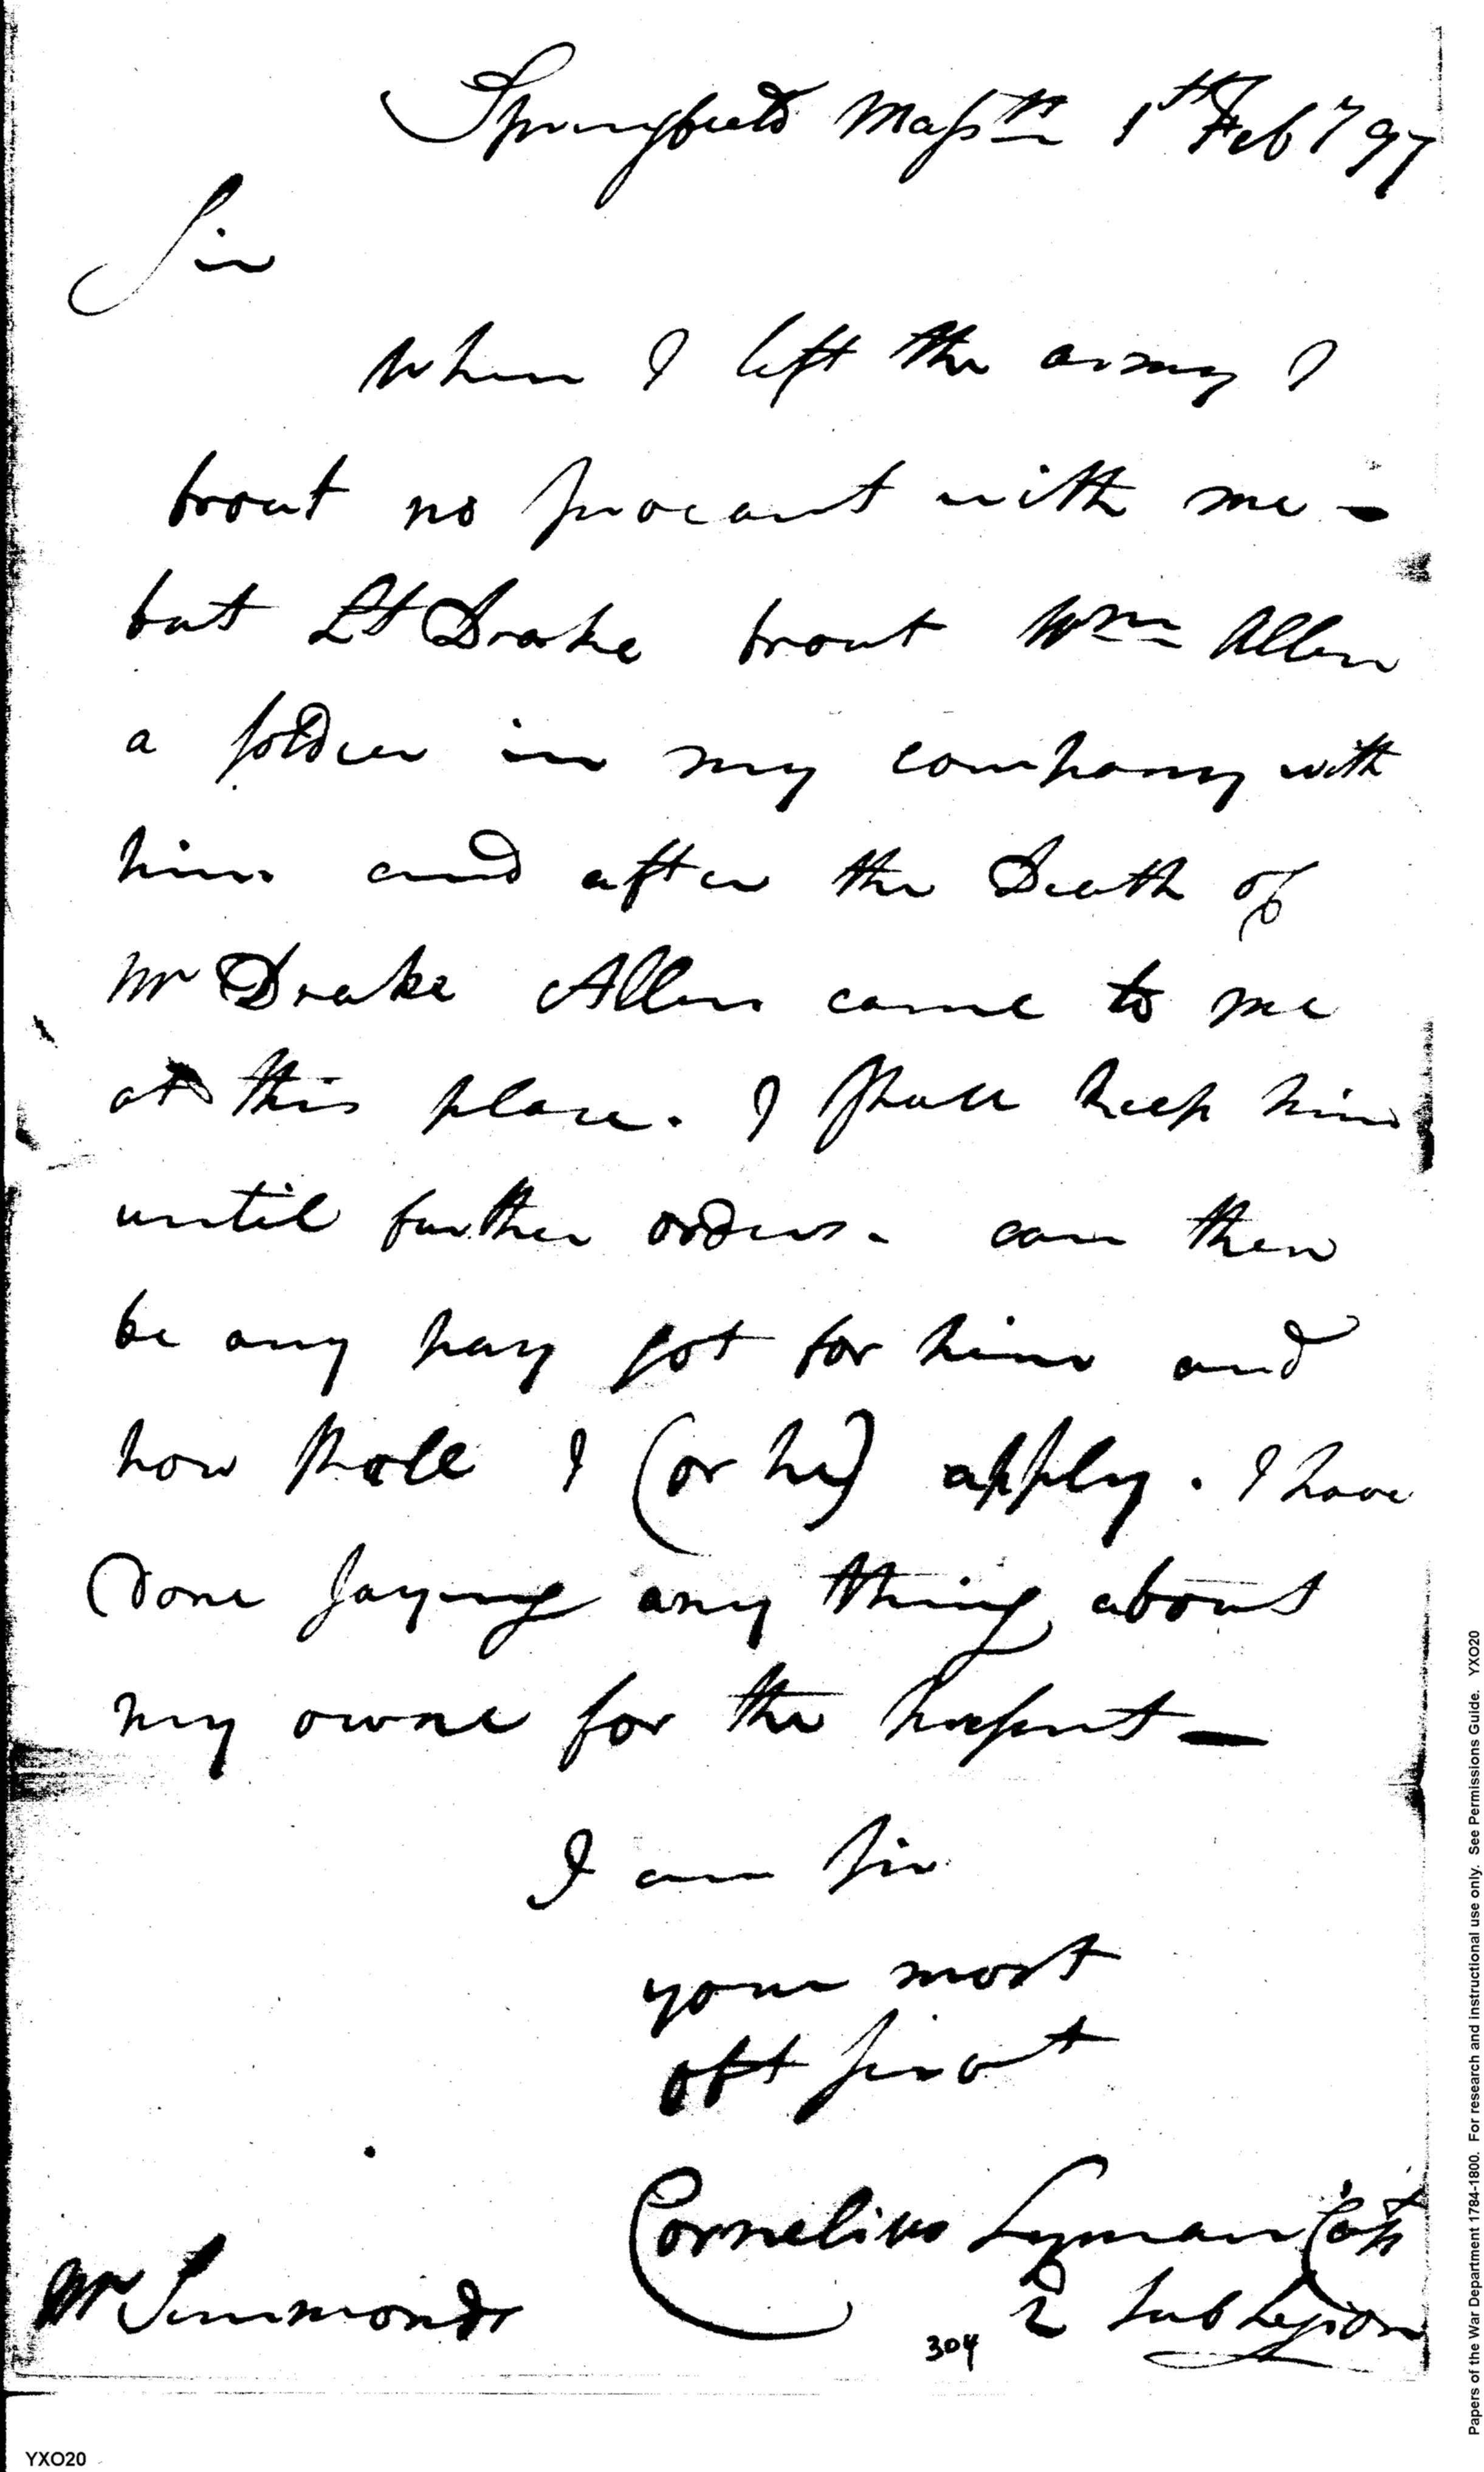 Springfield Massts 1th Feby 97
Sir
When I left the army I
brout no sarvant with me –
but Lt Drake brout Wm Allen
a soldier in my company with
him and after the Death of
Mr Drake Allen came to me
at this place. I shall keep him
until further orders. can their
be any pay got for him and
how shall I (or he) apply. I have
done saying any thing about
my owne for the present –
I am Sir
your most
obt servt
Cornelius Lyman Capt
2 Sub Legion
Mr Simmonds
304
YXO20
Papers of the War Department 1784-1800. For research and instructional use only. See Permissions Guide. YXO20